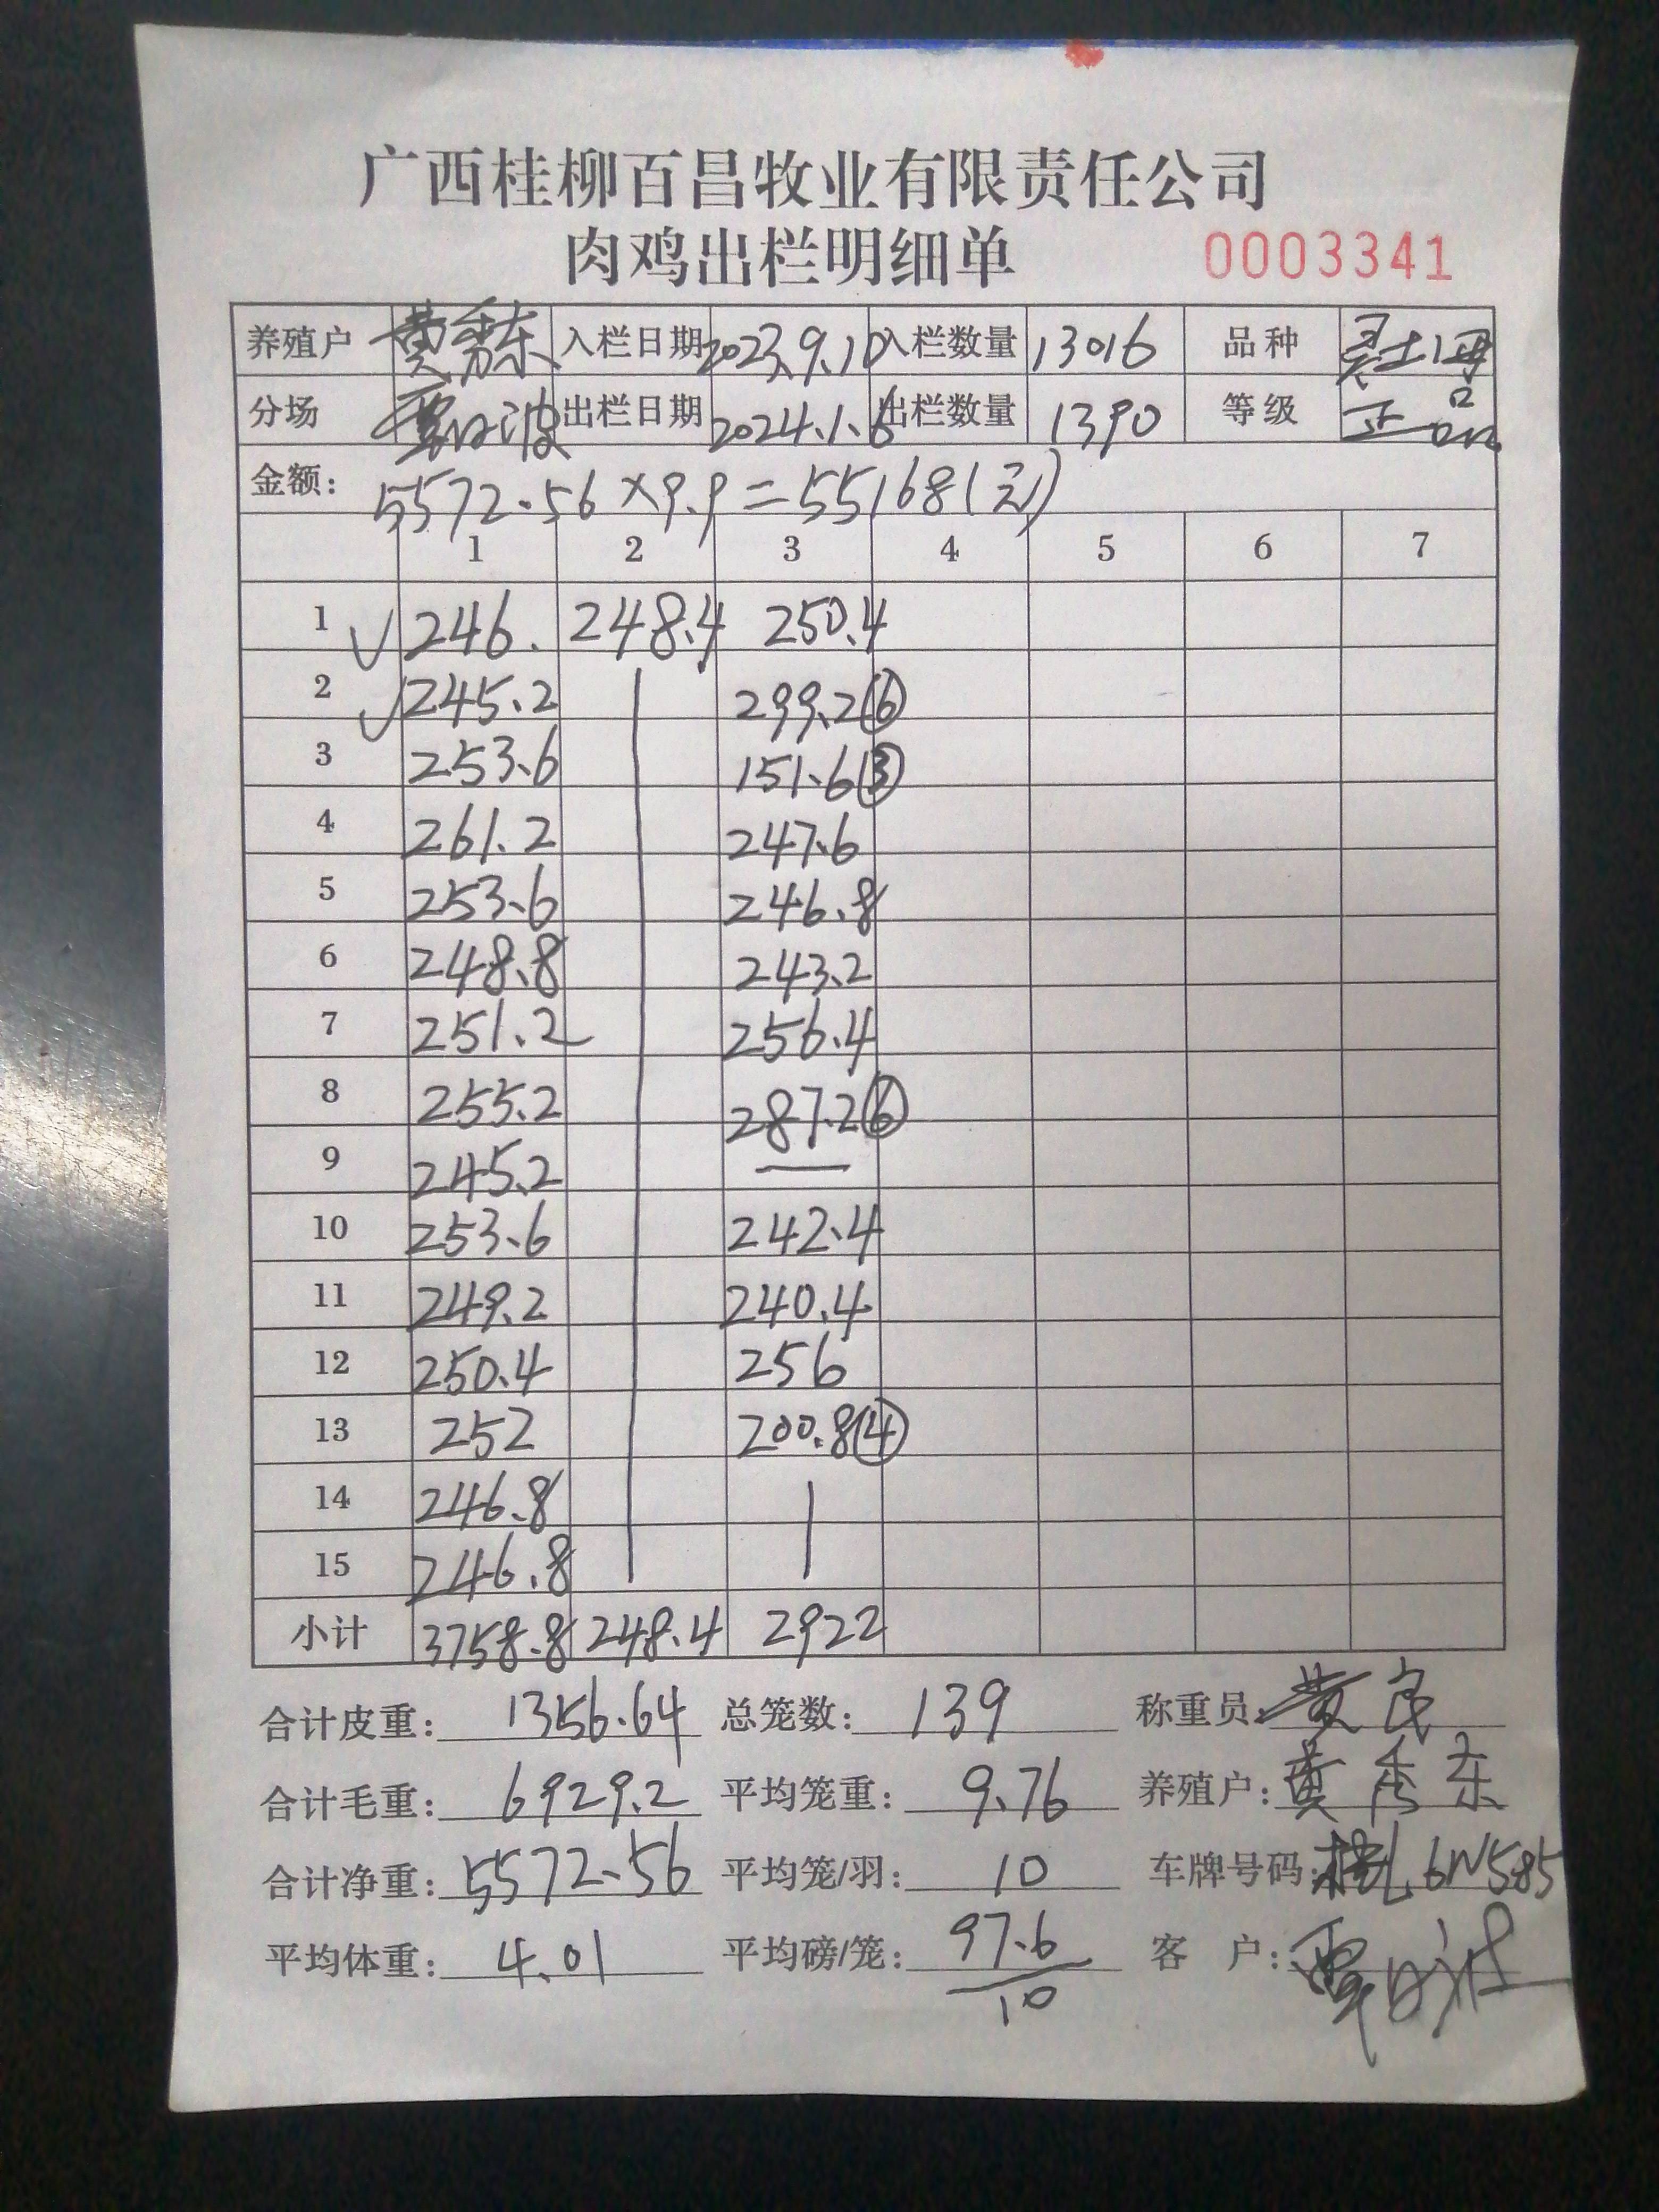 广西桂柳百昌牧业有限责任公司
肉鸡出栏明细单 0003341
养殖户 黄秀东 入栏日期 2023.9.10 入栏数量 13016 品种
分场 出栏日期 2024.1.6 出栏数量 1390 等级 正品
金额: 5572.56×9.9=55168(元)
1 2 3 4 5 6 7
1 246. 248.4 250.4
2 245.2 299.2⑥
3 253.6 151.6③
4 261.2 247.6
5 253.6 246.8
6 248.8 243.2
7 251.2 256.4
8 255.2 287.2⑥
9 245.2
10 253.6 242.4
11 249.2 240.4
12 250.4 256
13 252 200.8④
14 246.8
15 246.8
小计 3758.8 248.4 2922
合计皮重: 1356.64 总笼数: 139 称重员: 黄
合计毛重: 6929.2 平均笼重: 9.76 养殖户: 黄秀东
合计净重: 5572.56 平均笼/羽: 10 车牌号码: 桂L6N585
平均体重: 4.01 平均磅/笼: 97.6/10 客户: